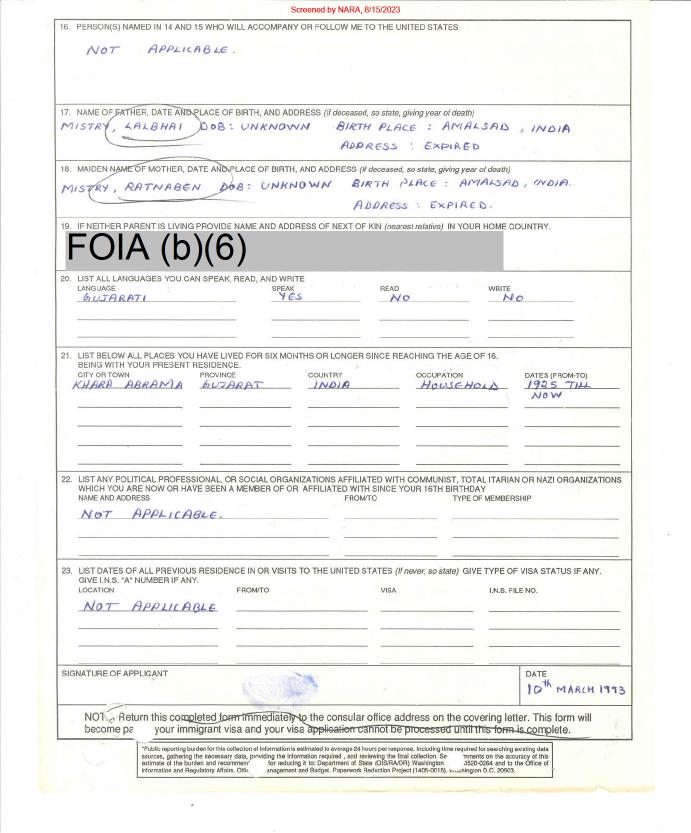 Screened by NARA, 8/15/2023
16. PERSON(S) NAMED IN 14 AND 15 WHO WILL ACCOMPANY OR FOLLOW ME TO THE UNITED STATES
NOT APPLICABLE.
17. NAME OF FATHER, DATE AND PLACE OF BIRTH, AND ADDRESS (if deceased, so state, giving year of death)
MISTRY, LALBHAI DOB: UNKNOWN BIRTH PLACE : AMALSAD, INDIA
ADDRESS : EXPIRED
18. MAIDEN NAME OF MOTHER, DATE AND PLACE OF BIRTH, AND ADDRESS (if deceased, so state, giving year of death)
MISTRY, RATNABEN DOB: UNKNOWN BIRTH PLACE : AMALSAD, INDIA.
ADDRESS : EXPIRED.
19. IF NEITHER PARENT IS LIVING PROVIDE NAME AND ADDRESS OF NEXT OF KIN (nearest relative) IN YOUR HOME COUNTRY.
FOIA (b)(6)
20. LIST ALL LANGUAGES YOU CAN SPEAK, READ, AND WRITE
LANGUAGE SPEAK READ WRITE
GUJARATI YES NO NO
21. LIST BELOW ALL PLACES YOU HAVE LIVED FOR SIX MONTHS OR LONGER SINCE REACHING THE AGE OF 16.
BEING WITH YOUR PRESENT RESIDENCE.
CITY OR TOWN PROVINCE COUNTRY OCCUPATION DATES (FROM-TO)
KHARA ABRAMA GUJARAT INDIA HOUSEHOLD 1925 TILL
NOW
22. LIST ANY POLITICAL PROFESSIONAL, OR SOCIAL ORGANIZATIONS AFFILIATED WITH COMMUNIST, TOTAL ITARIAN OR NAZI ORGANIZATIONS
WHICH YOU ARE NOW OR HAVE BEEN A MEMBER OF OR AFFILIATED WITH SINCE YOUR 16TH BIRTHDAY
NAME AND ADDRESS FROM/TO TYPE OF MEMBERSHIP
NOT APPLICABLE.
23. LIST DATES OF ALL PREVIOUS RESIDENCE IN OR VISITS TO THE UNITED STATES (If never, so state) GIVE TYPE OF VISA STATUS IF ANY.
GIVE I.N.S. "A" NUMBER IF ANY.
LOCATION FROM/TO VISA I.N.S. FILE NO.
NOT APPLICABLE
SIGNATURE OF APPLICANT DATE
10th MARCH 1993
NOT Return this completed form immediately to the consular office address on the covering letter. This form will
become pa your immigrant visa and your visa application cannot be processed until this form is complete.
*Public reporting burden for this collection of information is estimated to average 24 hours per response. Including time required for searching existing data
sources, gathering the necessary data, providing the information required , and reviewing the final collection. Se ments on the accuracy of this
estimate of the burden and recommen for reducing it to: Department of State (OIS/RA/DR) Washington 0520-0264 and to the Office of
Information and Regulatory Affairs, Offic anagement and Budget, Paperwork Reduction Project (1405-0015). Washington D.C. 20503.